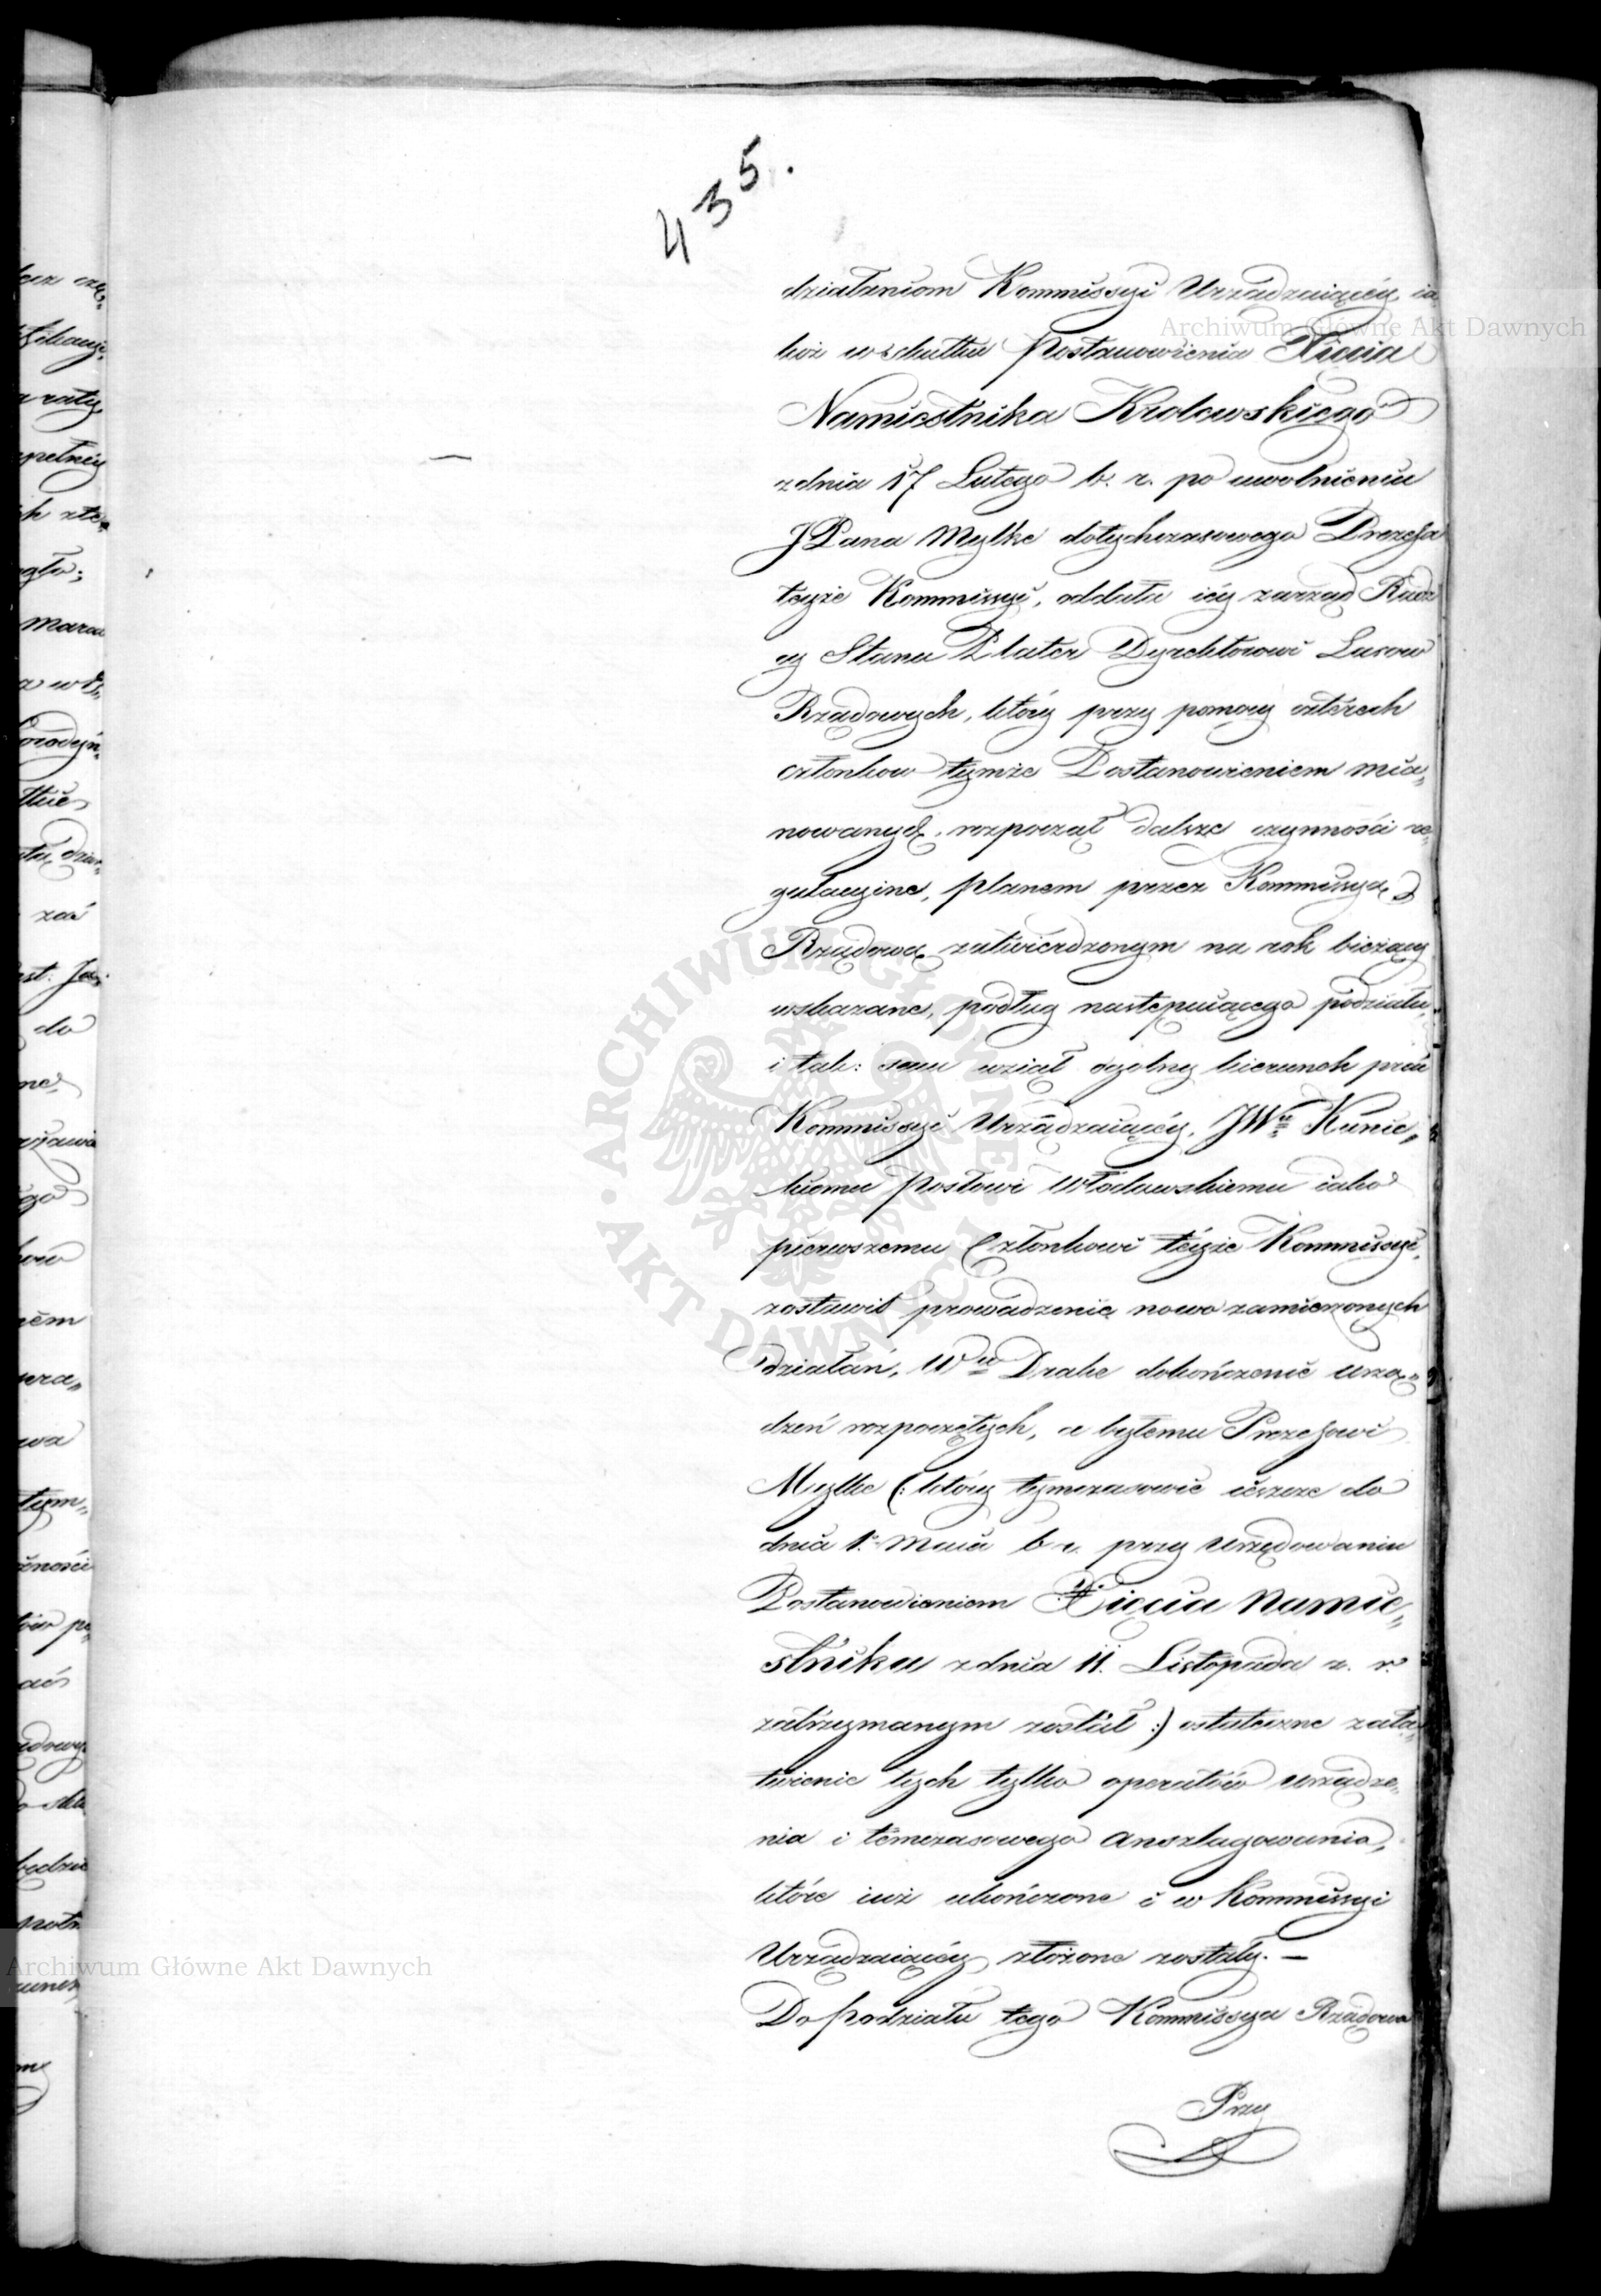 435.
działaniom Kommissyi Urządzaiącéy, ia
koż w skutku Postanowienia Xięcia
Namiestnika Krolewskiego
z dnia 17 Lutego b. r. po uwolnieniu
JPana Mylke dotychczasowego Prezesa
teyże Kommissyi, oddała iéy zarząd Radz
cy Stanu Plater Dyrektorowi Lasow
Rządowych, który przy pomocy czterech
członkow tymże Postanowieniem mia„
nowanych, rozpoczął dalsze czynności re„
gulacyine, planem przez Kommissyą
Rządową zatwierdzonym na rok bieżący
wskazane, podług następuiącego podziału,
i tak: sam wziął ogolny kierunek prac
Kommissyi Urządzaiącéy, JWu Kunic„
kiemu Posłowi Włodawskiemu iako
pierwszemu Członkowi téyże Kommissyi,
zostawił prowadzenie nowo zamierzonych
działań, Wu Drake dokończenie urzą„
dzeń rozpoczętych, a byłemu Prezesowi
Mylke (: który tymczasowie ieszcze do
dnia 1. Maia b. r. przy urzędowaniu
Postanowieniem Xięcia Namie„
stnika z dnia 11. Listopada z. r.
zatrzymanym został :) ostateczne zała„
twienie tych tylko operatów urządze„
nia i témczasowego anszlagowania,
które iuż ukończone i w Kommissyi
Urządzaiącéy złożone zostały. —
Do podziału tego Kommissya Rządowa
Przy
Archiwum Główne Akt Dawnych
Archiwum Główne Akt Dawnych
ARCHIWUM GŁÓWNE AKT DAWNYCH